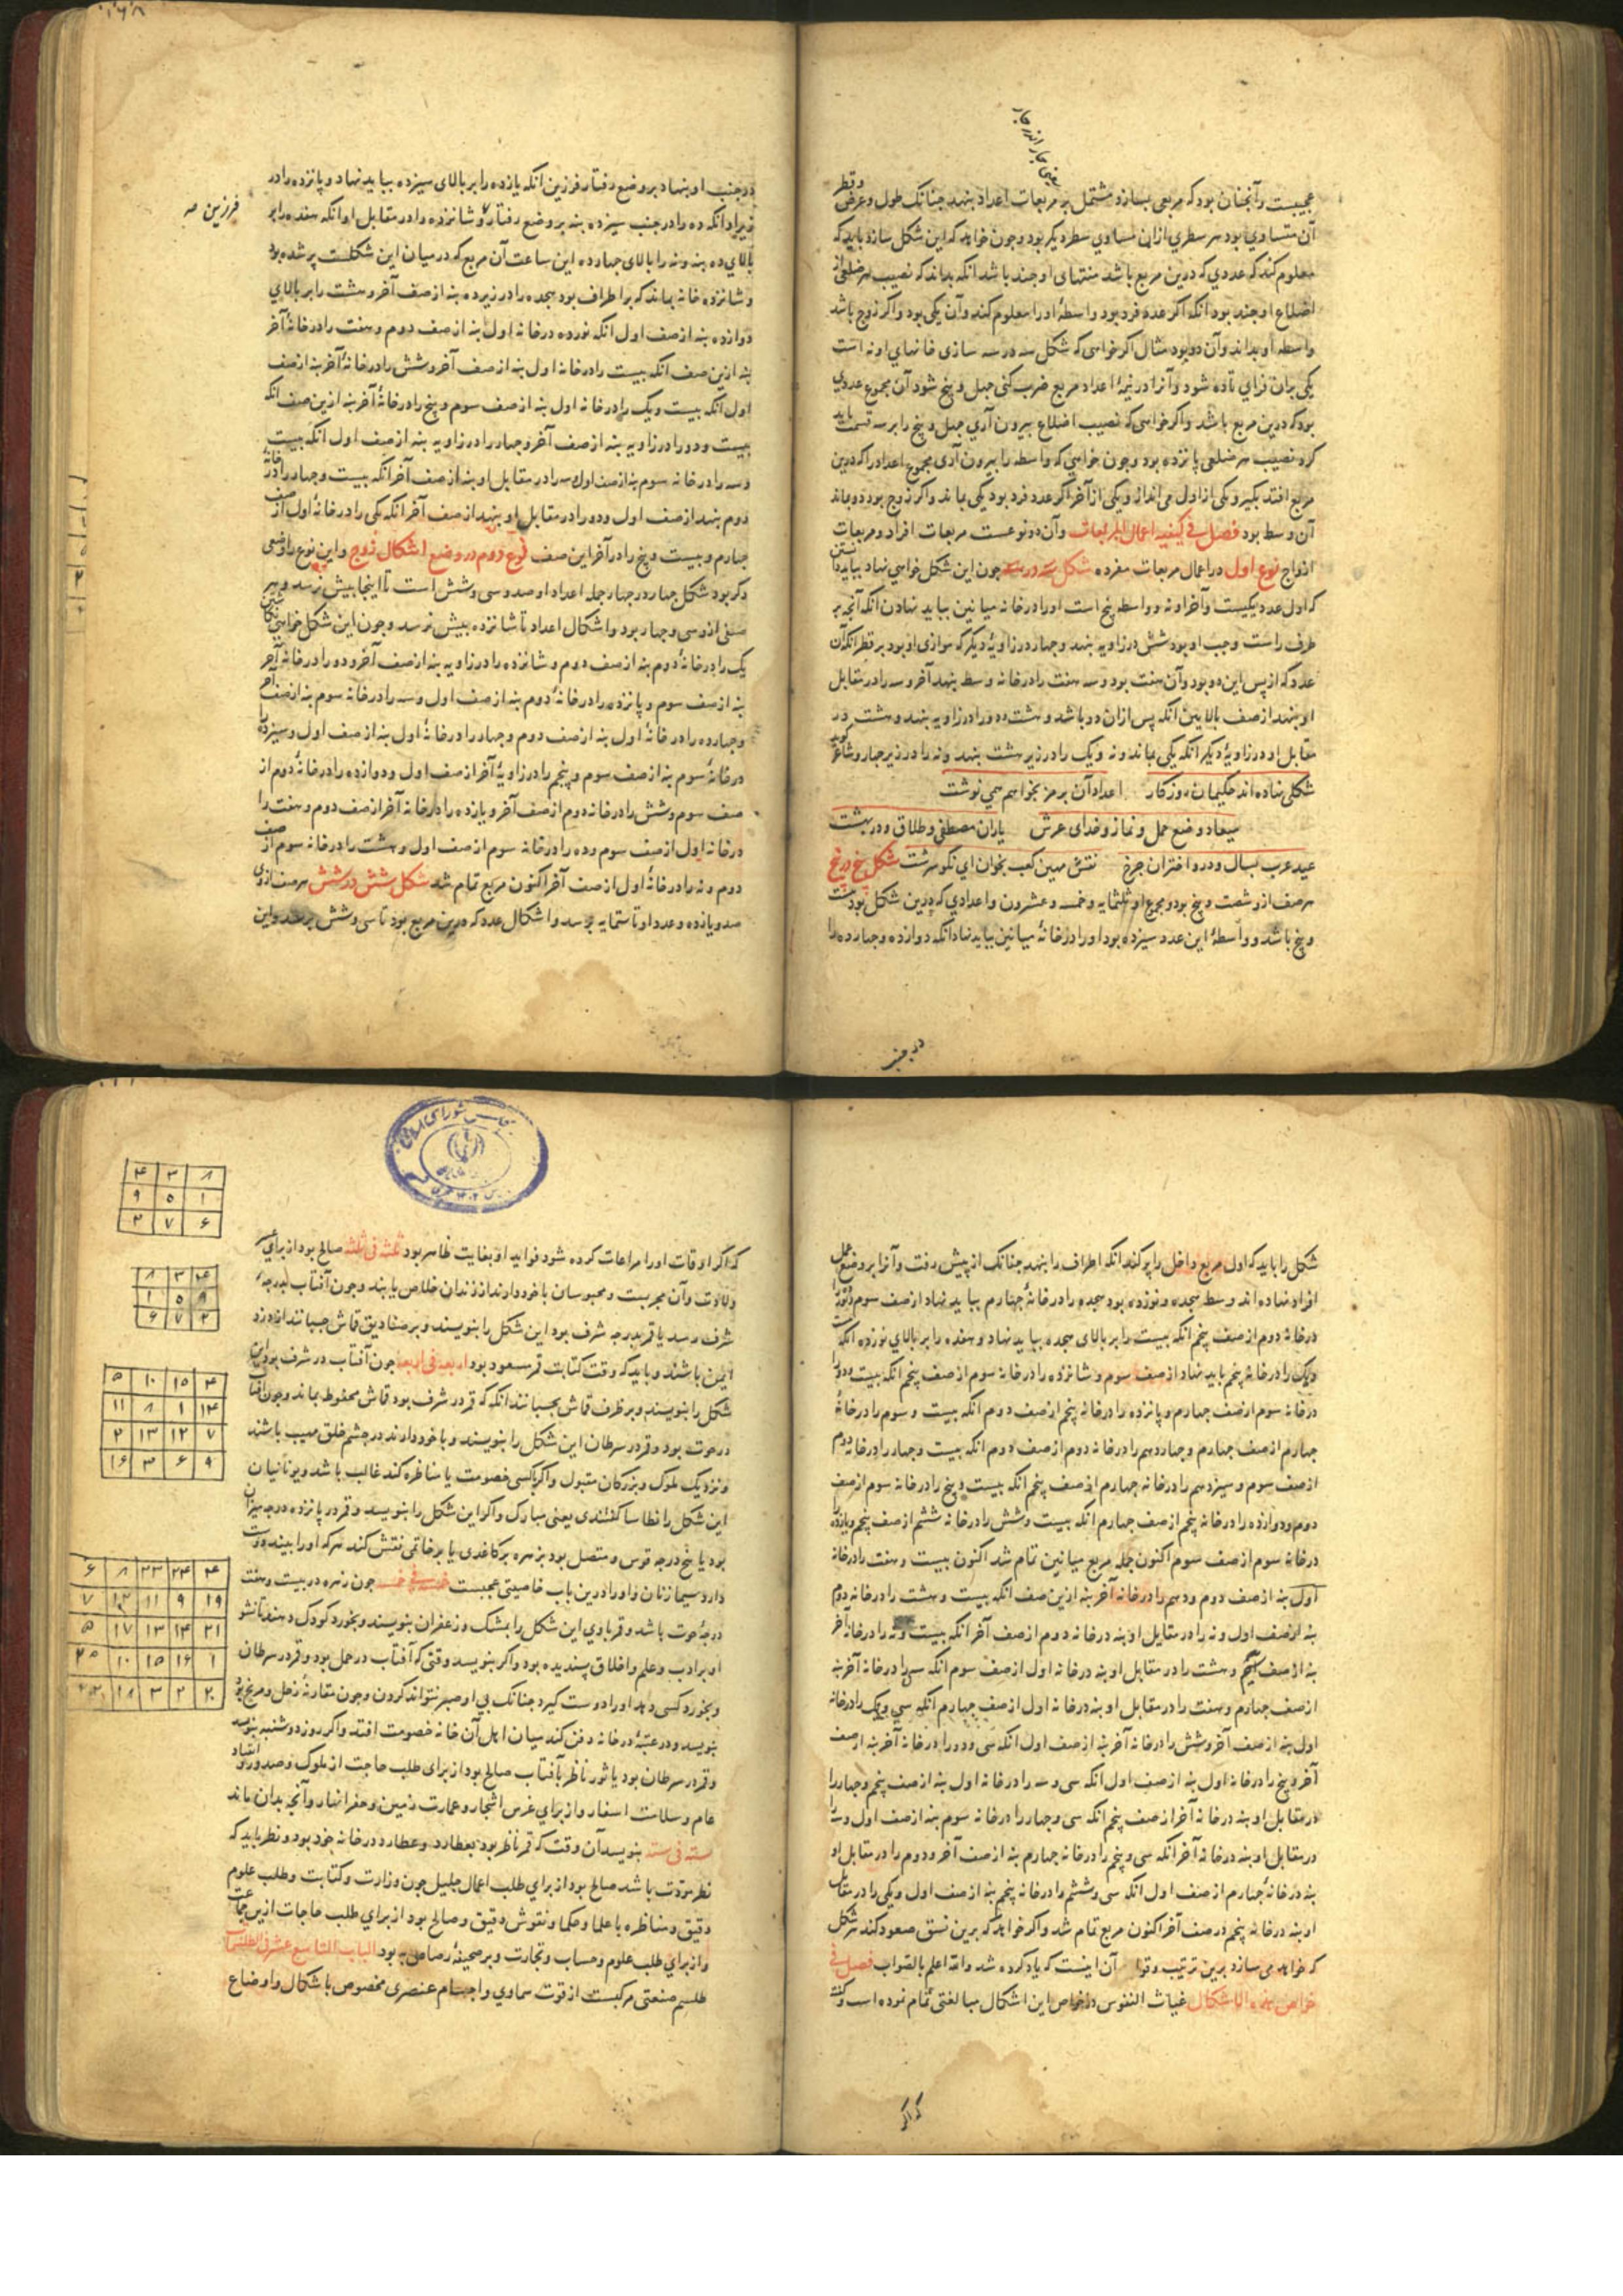 عجیبست و آنچنان بود که مربعی بسازد مشتمل بر مربعات اعداد بنهد چنانک طول و عرض و قطر
آن متساوی بود هر سطری ازان مساوی سطر دیگر بود و چون خواهد که این شکل سازد باید که
معلوم کند که عددی که درین مربع باشد منتهای او چند باشد انکه بداند که نصیب هر ضلعی از
اضلاع او چند بود انکه اکر عدد فرد بود واسطهٔ او را معلوم کند و آن یکی بود و اکر زوج باشد
واسطه او بداند و آن دو بود مثال اکر خواهی که شکل سه در سه سازی خانهای او نه است
یکی بران فزایی تا ده شود و آنرا در نیمهٔ اعداد مربع ضرب کنی چهل و پنج شود آن مجموع عددی
بود که درین مربع باشد و اکر خواهی که نصیب اضلاع بیرون آری چهل و پنج را بر سه قسمت باید
کرد نصیب هر ضلعی پانزده بود و چون خواهی که واسطه را بیرون آری مجموع اعداد را که درین
مربع افتد بکیر و یکی از اول می انداز و یکی از آخر اکر عدد فرد بود یکی بماند و اکر زوج بود دو بماند
آن وسط بود فصل فی کیفیه اعمال المربعات و آن دو نوعست مربعات افراد و مربعات
ازواج نوع اول در اعمال مربعات مفرده شکل سه در سه چون این شکل خواهی نهاد بباید دانستن
که اول عدد یکیست و آخر او نه و واسطه پنج است او را در خانه میانین بباید نهادن انکه آنچه بر
طرف راست و چپ او بود شش در زاویه بنهد و چهار در زاویهٔ دیکر که موازی او بود بر قطر انکه آن
عدد که از پس این دو بود و آن هفت بود و سه هفت را در خانه وسط بنهد آخر و سه را در مقابل
او بنهد از صف بالایین انکه پس ازان دو باشد و هشت دو را در زاویه بنهد و هشت در
مقابل او در زاویهٔ دیکر انکه یکی بماند و نه و یک را در زیر هشت بنهد و نه را در زیر چهار و شاعر کوید
شکلی نهاده اند حکیمان روزکار اعداد آن برمز بخواهم همی نوشت
میعاد و وضع حمل و نماز و خدای عرش یاران مصطفی و طلاق و در بهشت
عید عرب بسال و در و اختران چرخ نقش مهین کعب بخوان ای نکو سرشت شکل پنج در پنج
هر صف از و شصت و پنج بود و مجموع او ثلثمایه و خمسه و عشرون و اعدادی که درین شکل بود بیست
و پنج باشد و واسطهٔ این عدد سیزده بود او را در خانهٔ میانین بباید نهاد انکه دوازده و چهارده را
در جنب
در جنب او بنهاد بر وضع رفتار فرزین انکه یازده را بر بالای سیزده بباید نهاد و پانزده را در
زیر او انکه ده را در جنب سیزده بنه بر وضع رفتار و شانزده را در مقابل او انکه هفده را بر
بالای ده بنه و نه را بالای چهارده این ساعت آن مربع که در میان این شکلست پر شده بود
و شانزده خانه بماند که بر اطراف بود هجده را در زیر ده بنه از صف آخر و هشت را بر بالای
دوازده بنه از صف اول انکه نوزده در خانه اول بنه از صف دوم و هفت را در خانهٔ آخر
بنه ازین صف انکه بیست را در خانه اول بنه از صف آخر و شش را در خانهٔ آخر بنه از صف
اول انکه بیست و یک را در خانه اول بنه از صف سوم و پنج را در خانهٔ آخر بنه ازین صف انکه
بیست و دو را در زاویه بنه از صف آخر و چهار را در زاویه بنه از صف اول انکه بیست
و سه را در خانه سوم بنه از صف اول سه را در مقابل او بنه از صف آخر انکه بیست و چهار را در خانه
دوم بنهد از صف اول و دو را در مقابل او بنهد از صف آخر انکه یکی را در خانهٔ اول از صف
چهارم و بیست و پنج را در آخر این صف نوع دوم در وضع اشکال زوج و این نوع را وضعی
دکر بود شکل چهار در چهار جمله اعداد او صد و سی و شش است تا اینجا بیش نرسد و هر
صفی ازو سی و چهار بود و اشکال اعداد تا شانزده بیش نرسد و چون این شکل خواهی
یک را در خانهٔ دوم بنه از صف دوم و شانزده را در زاویه بنه از صف آخر و دو را در خانهٔ آخر
بنه از صف سوم و پانزده را در خانهٔ دوم بنه از صف اول و سه را در خانه سوم بنه از صف آخر
و چهارده را در خانهٔ اول بنه از صف دوم و چهار را در خانهٔ اول بنه از صف اول و سیزده را
در خانهٔ سوم بنه از صف سوم و پنجم را در زاویهٔ آخر از صف اول و دوازده را در خانهٔ دوم از
صف سوم و شش را در خانه دوم از صف آخر و یازده را در خانه آخر از صف دوم و هفت را
در خانه اول از صف سوم و ده را در خانه سوم از صف اول و هشت را در خانه سوم از صف
دوم و نه را در خانهٔ اول از صف آخر اکنون مربع تمام شد شکل شش در شش هر صف ازوی
صد و یازده و عدد او تا ستمایه برسد و اشکال عدد که درین مربع بود تا سی و شش برسد و این
فرزین صه
شکل را باید که اول مربع داخل را پر کند انکه اطراف را بنهد چنانک از پیش رفت و آنرا بر وضع عمل
افراد نهاده اند وسط هجده و نوزده بود هجده را در خانهٔ چهارم بباید نهاد از صف سوم و نوزده را
در خانهٔ دوم از صف پنجم انکه بیست را بر بالای هجده بباید نهاد و هفده را بر بالای نوزده انکه بیست
و یک را در خانه پنجم باید نهاد از صف سوم و شانزده را در خانه سوم از صف پنجم انکه بیست و دو را
در خانه سوم از صف چهارم و پانزده را در خانه پنجم از صف دوم انکه بیست و سوم را در خانهٔ
چهارم از صف چهارم و چهاردهم را در خانه دوم از صف دوم انکه بیست و چهار را در خانه دوم
از صف سوم و سیزدهم را در خانه چهارم از صف پنجم انکه بیست و پنج را در خانه سوم از صف
دوم و دوازده را در خانه پنجم از صف چهارم انکه بیست و شش را در خانه ششم از صف پنجم و یازده را
در خانه سوم از صف سوم اکنون جمله مربع میانین تمام شد اکنون بیست و هفت را در خانه
اول بنه از صف دوم و دهم را در خانه آخر بنه ازین صف انکه بیست و هشت را در خانه دوم
بنه از صف اول و نه را در مقابل او بنه در خانه دوم از صف آخر انکه بیست و نه را در خانه آخر
بنه از صف پنجم و هشت را در مقابل او بنه در خانه اول از صف سوم انکه سی را در خانه آخر بنه
از صف چهارم و هفت را در مقابل او بنه در خانه اول از صف چهارم انکه سی و یک را در خانه
اول بنه از صف آخر و شش را در خانه آخر بنه از صف اول انکه سی و دو را در خانه آخر بنه از صف
آخر و پنج را در خانه اول بنه از صف اول انکه سی و سه را در خانه اول بنه از صف پنجم و چهار را
در مقابل او بنه در خانه آخر از صف پنجم انکه سی و چهار را در خانه سوم بنه از صف اول و سه
در مقابل او بنه در خانه آخر انکه سی و پنج را در خانه چهارم بنه از صف آخر و دوم را در مقابل او
بنه در خانهٔ چهارم از صف اول انکه سی و ششم را در خانه پنجم بنه از صف اول و یکی را در مقابل
او بنه در خانه پنجم در صف آخر اکنون مربع تمام شد و اکر خواهد که برین نسق صعود کند هر شکل
که خواهد می سازد برین ترتیب و قوانا آن اینست که یاد کرده شد والله اعلم بالصواب فصل فی
خواص هذه الاشکال غیاث النفوس در خواص این اشکال مبالغتی تمام نموده است و کفته
که اکر
که اکر اوقات او را مراعات کرده شود فواید او بغایت ظاهر بود ثلثه فی ثلثه صالح بود از برای عسر
ولادت و آن مجربست و محبوسان با خود دارند از زندان خلاص یابند و چون آفتاب بدرجه
شرف رسد یا قمر بدرجه شرف بود این شکل را بنویسند و بر صنادیق قماش چسبانند از دزد
ایمن باشند و باید که وقت کتابت قمر مسعود بود اربعه فی اربعه چون آفتاب در شرف بود این
شکل را بنویسند و بر ظرف قماش بچسبانند انکه که قمر در شرف بود قماش محفوظ بماند و چون آفتاب
در حوت بود و قمر در سرطان این شکل را بنویسند و با خود دارند در چشم خلق مهیب باشند
و نزدیک ملوک و بزرکان مقبول و اکر با کسی خصومت یا مناظره کند غالب باشد و یونانیان
این شکل را نطاسا کفتندی یعنی مبارک و اکر این شکل را بنویسد و قمر در پانزده درجه میزان
بود یا پنج درجه قوس و متصل بود بزهره بر کاغدی یا بر خاتمی نقش کند هر که او را بیند دوست
دارد سیما زنان و او را درین باب خاصیتی عجبست خمسه فی خمسه چون زهره در بیست و هفت
درجهٔ حوت باشد و قمر با وی این شکل را بمشک و زعفران بنویسند و بخورد کودک دهند تا نشو
او بر ادب و علم و اخلاق پسندیده بود و اکر بنویسد وقتی که آفتاب در حمل بود و قمر در سرطان
و بخورد کسی دهد او را دوست کیرد چنانک بی او صبر نتواند کردن و چون مقارنهٔ زحل و مریخ بود
بنویسد و در عتبهٔ در خانه دفن کند میان اهل آن خانه خصومت افتد و اکر روز دوشنبه بنویسد
و قمر در سرطان بود یا ثور ناظر بآفتاب صالح بود از برای طلب حاجت از ملوک و صدور و انقیاد
عام و سلامت اسفار و از برای غرس اشجار و عمارت زمین و حفر انهار و آنچه بدان ماند
سته فی سته بنویسد آن وقت که قمر ناظر بود بعطارد و عطارد در خانه خود بود و نظر باید که
نظر مودت باشد صالح بود از برای طلب اعمال جلیل چون وزارت و کتابت و طلب علوم
دقیق و مناظره با علما و حکما و نقوش دقیق و صالح بود از برای طلب حاجات ازین جماعت
و از برای طلب علوم و حساب و تجارت و بر صحیفهٔ رصاص به بود الباب التاسع عشر فی الطلسمات
طلسم صنعتی مرکبست از قوت سماوی و اجسام عنصری مخصوص باشکال و اوضاع
۴ ۳ ۸
۹ ۵ ۱
۲ ۷ ۶
۸ ۳ ۴
۱ ۵ ۹
۶ ۷ ۲
۵ ۱۰ ۱۵ ۴
۱۱ ۸ ۱ ۱۴
۲ ۱۳ ۱۲ ۷
۱۶ ۳ ۶ ۹
۶ ۸ ۲۳ ۲۴ ۴
۷ ۱۲ ۱۱ ۹ ۱۹
۵ ۱۷ ۱۳ ۱۴ ۲۱
۲۵ ۱۰ ۱۵ ۱۶ ۱
۱۸ ۳ ۲ ۲۰